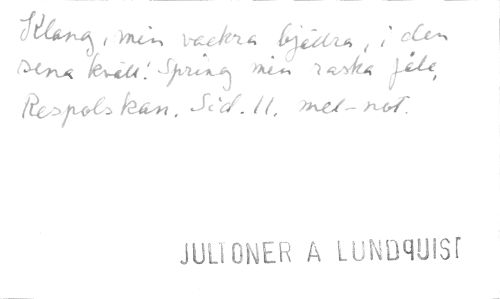 Klang, min vackra bjällra, i den
sena kväll! Spring min raska fåle,
Respolskan. Sid. 11. mel-not.
JULTONER A LUNDQUIST